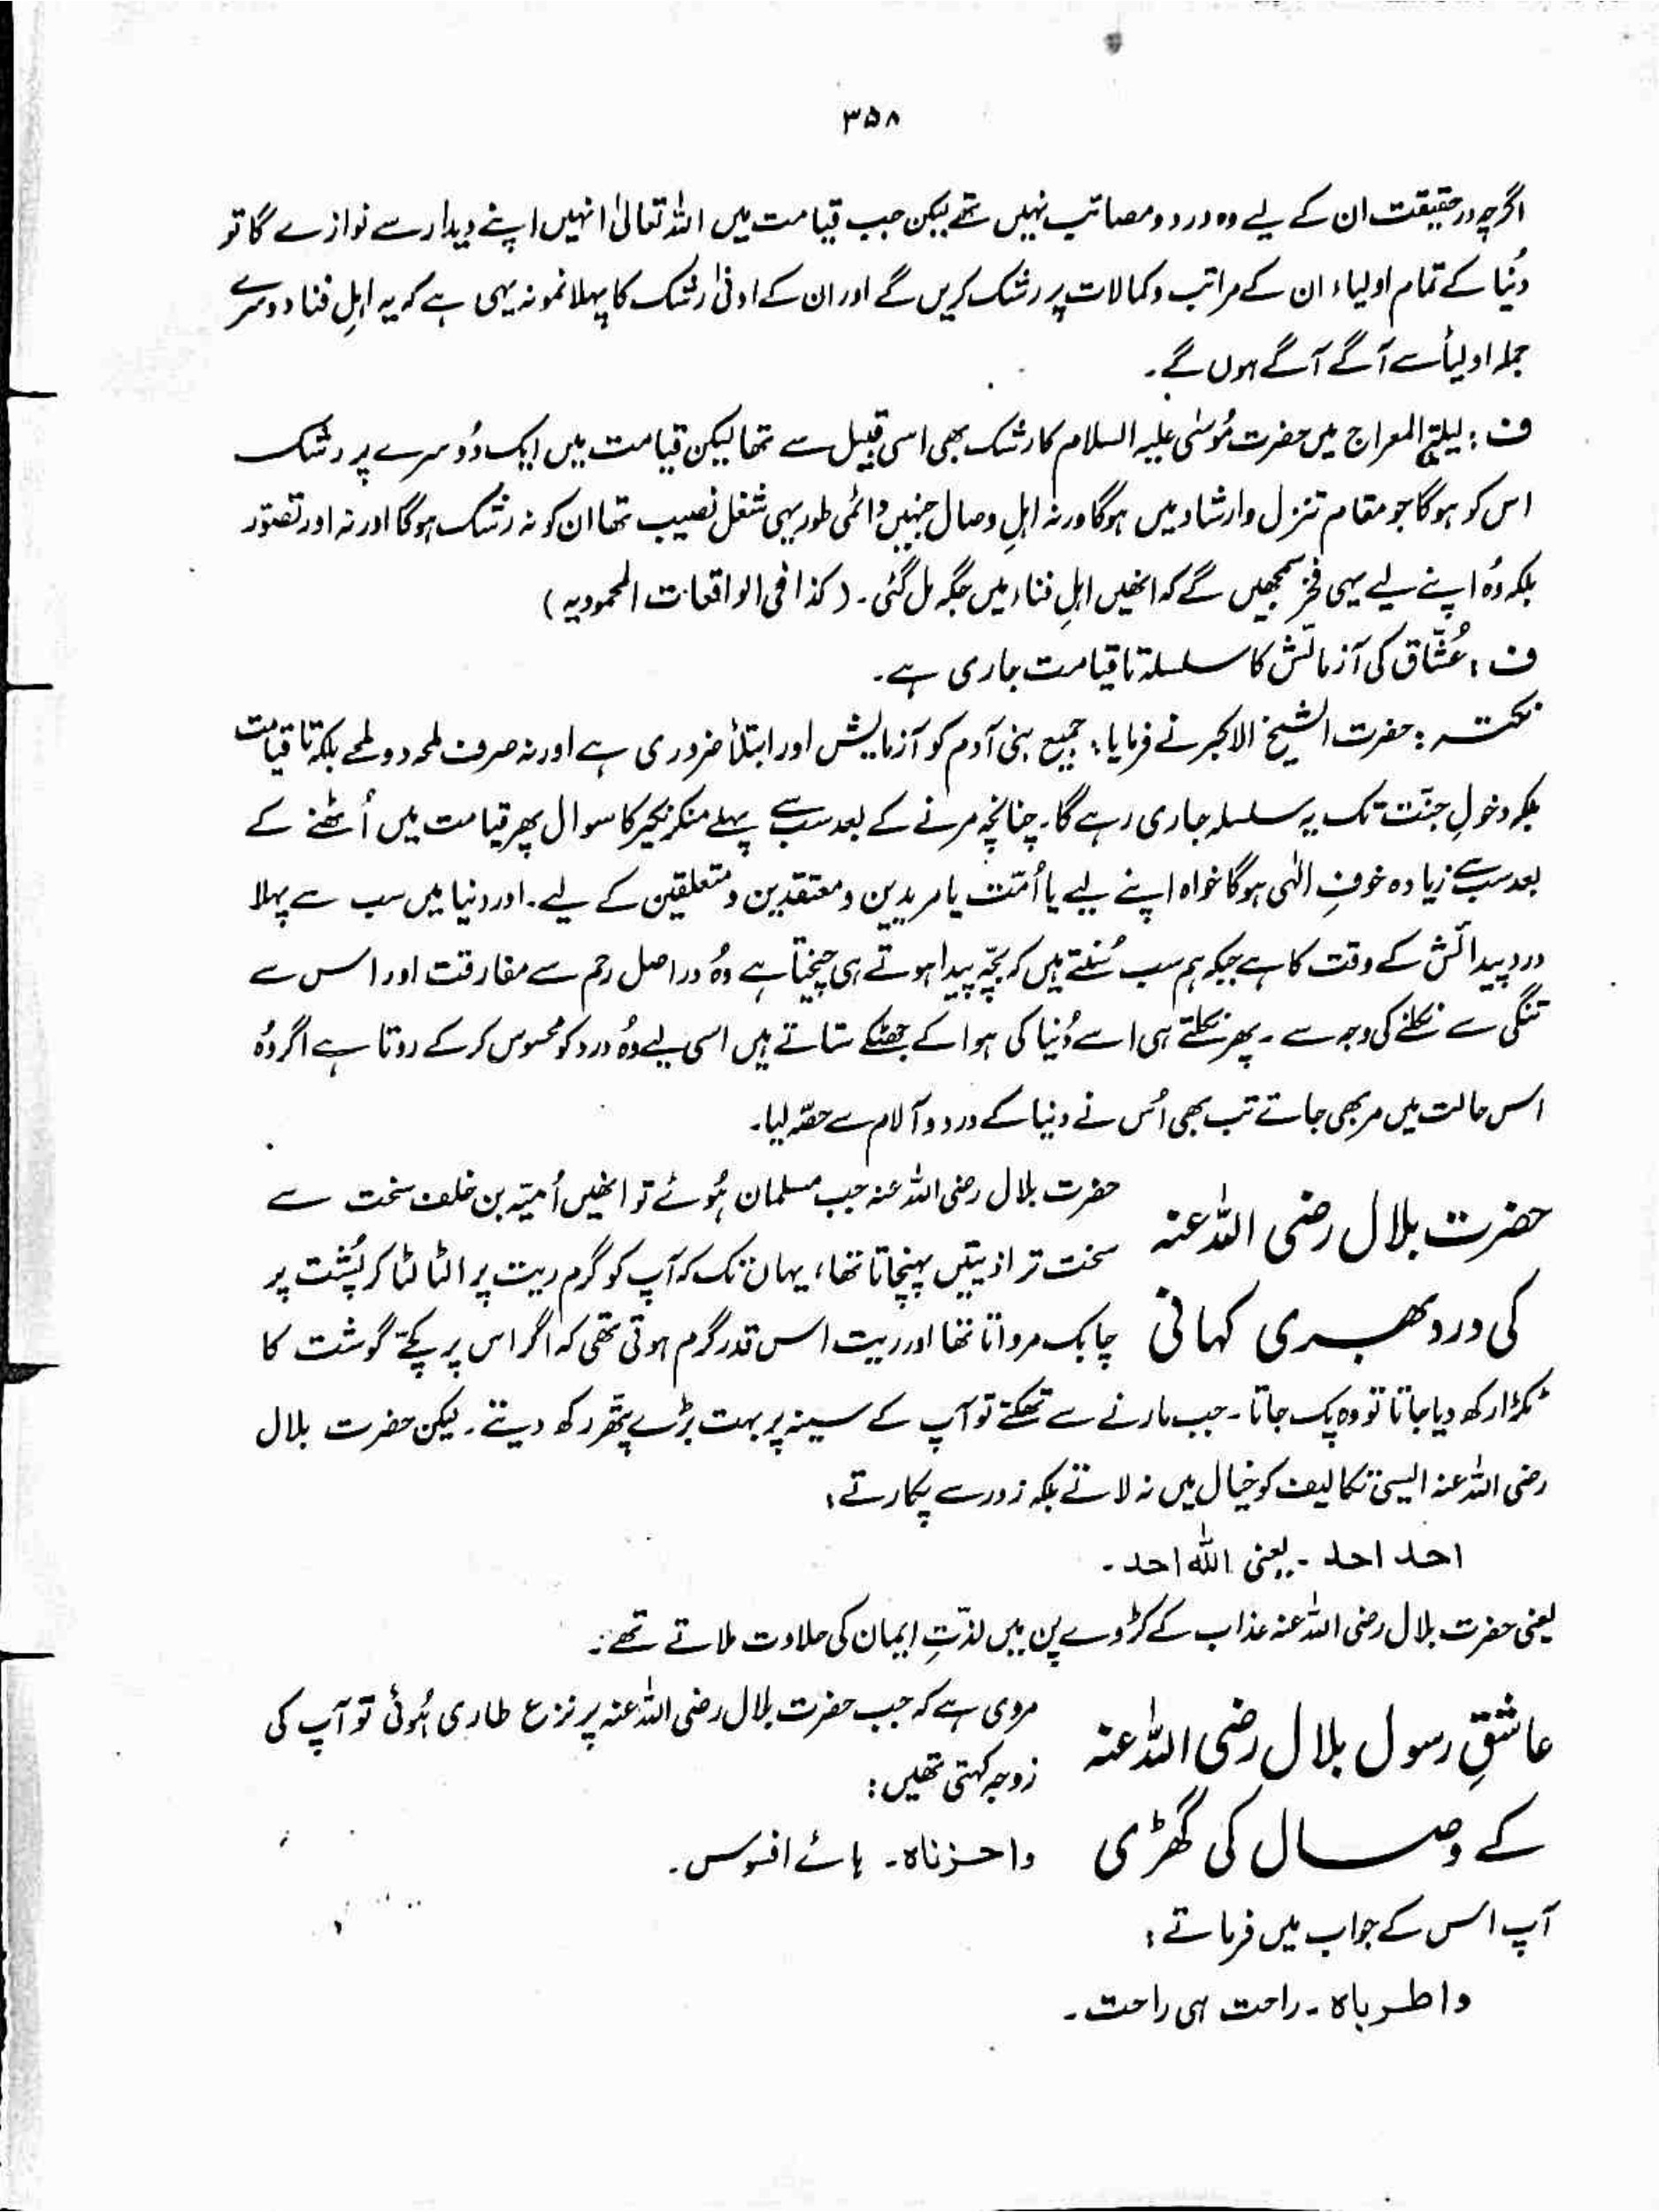 ۳۵۸
اگرچہ درحقیقت ان کے لیے وہ درد ومصائب نہیں تھے لیکن جب قیامت میں اللہ تعالیٰ انہیں اپنے دیدار سے نوازے گا تو
دُنیا کے تمام اولیاء ان کے مراتب وکمالات پر رشک کریں گے اور ان کے ادنیٰ رشک کا پہلا نمونہ یہی ہے کہ یہ اہلِ فنا دوسرے
جملہ اولیأ سے آگے آگے ہوں گے۔
ف : لیلۃ المعراج میں حضرت مُوسٰی علیہ السلام کا رشک بھی اسی قبیل سے تھا لیکن قیامت میں ایک دُوسرے پر رشک
اس کو ہوگا جو مقام تنزل وارشاد میں ہوگا ورنہ اہلِ وصال جنہیں دائمی طور یہی شغل نصیب تھا ان کو نہ رشک ہوگا اور نہ اور تصوّر
بلکہ وُہ اپنے لیے یہی فخر سمجھیں گے کہ انھیں اہلِ فناء میں جگہ مل گئی۔ (کذا فی الواقعات المحمودیہ)
ف : عُشّاق کی آزمائش کا سلسلہ تا قیامت جاری ہے۔
نکتہ : حضرت الشیخ الاکبر نے فرمایا : جمیع بنی آدم کو آزمایش اور ابتلأ ضروری ہے اور نہ صرف لمحہ دو لمحے بلکہ تا قیامت
بلکہ دخولِ جنّت تک یہ سلسلہ جاری رہے گا۔ چنانچہ مرنے کے بعد سب سے پہلے منکر نکیر کا سوال پھر قیامت میں اُٹھنے کے
بعد سب سے زیادہ خوفِ الٰہی ہوگا خواہ اپنے لیے یا اُمّت یا مریدین ومعتقدین ومتعلقین کے لیے۔ اور دنیا میں سب سے پہلا
درد پیدائش کے وقت کا ہے جبکہ ہم سب سُنتے ہیں کہ بچّہ پیدا ہوتے ہی چیختا ہے وُہ دراصل رحم سے مفارقت اور اس سے
تنگی سے نکلنے کی وجہ سے ۔ پھر نکلتے ہی اسے دُنیا کی ہوا کے جھٹکے ستاتے ہیں اسی لیے وُہ درد کو محسوس کرکے روتا ہے اگر وُہ
اس حالت میں مر بھی جائے تب بھی اُس نے دنیا کے درد وآلام سے حصّہ لیا۔
حضرت بلال رضی اللہ عنہ
کی درد بھری کہانی
حضرت بلال رضی اللہ عنہ جب مسلمان ہُوئے تو انھیں اُمیّہ بن خلف سخت سے
سخت تر اذیتیں پہنچاتا تھا، یہاں تک کہ آپ کو گرم ریت پر الٹا لٹا کر پُشت پر
چابک مرواتا تھا اور ریت اس قدر گرم ہوتی تھی کہ اگر اس پر کچے گوشت کا
ٹکڑا رکھ دیا جاتا تو وہ پک جاتا۔ جب مارنے سے تھکتے تو آپ کے سینہ پر بہت بڑے پتھر رکھ دیتے۔ لیکن حضرت بلال
رضی اللہ عنہ ایسی تکالیف کو خیال میں نہ لاتے بلکہ زور سے پکارتے :
احد احد ۔ یعنی اللہ احد ۔
یعنی حضرت بلال رضی اللہ عنہ عذاب کے کڑوے پن میں لذّتِ ایمان کی حلاوت ملاتے تھے۔
عاشقِ رسول بلال رضی اللہ عنہ
کے وصال کی گھڑی
مروی ہے کہ جب حضرت بلال رضی اللہ عنہ پر نزع طاری ہُوئی تو آپ کی
زوجہ کہتی تھیں :
واحزناہ۔ ہائے افسوس۔
آپ اس کے جواب میں فرماتے :
واطرباہ ۔ راحت ہی راحت ۔